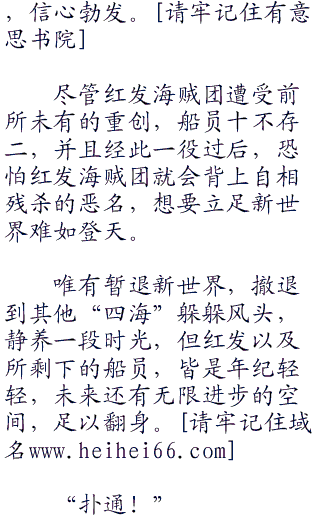 ，信心勃发。[请牢记住有意
思书院]
尽管红发海贼团遭受前
所未有的重创，船员十不存
二，并且经此一役过后，恐
怕红发海贼团就会背上自相
残杀的恶名，想要立足新世
界难如登天。
唯有暂退新世界，撤退
到其他“四海”躲躲风头，
静养一段时光，但红发以及
所剩下的船员，皆是年纪轻
轻，未来还有无限进步的空
间，足以翻身。[请牢记住域
名www.heihei66.com]
“扑通！”